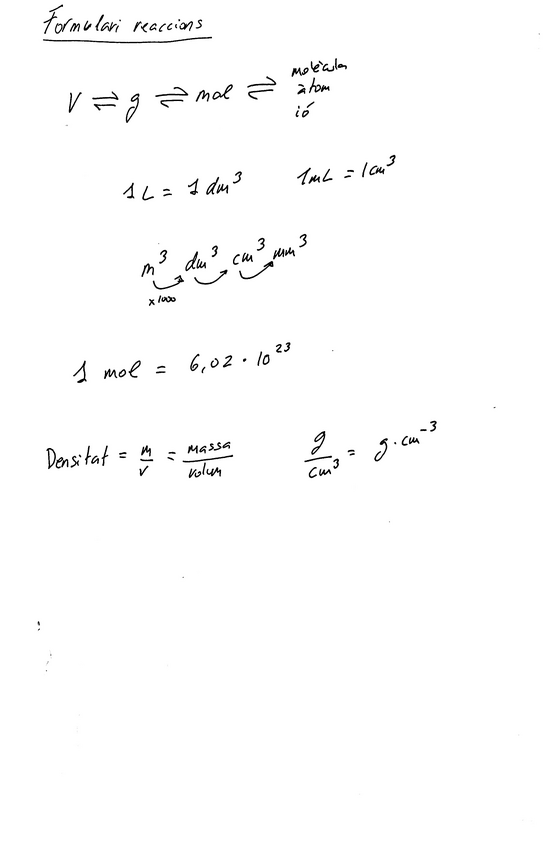 Formulari reaccions
V ⇌ g ⇌ mol ⇌ molècula
àtom
ió
1 L = 1 dm³ 1mL = 1cm³
m³ dm³ cm³ mm³
x1000
1 mol = 6,02 · 10²³
Densitat = m/v = massa/volum g/cm³ = g·cm⁻³